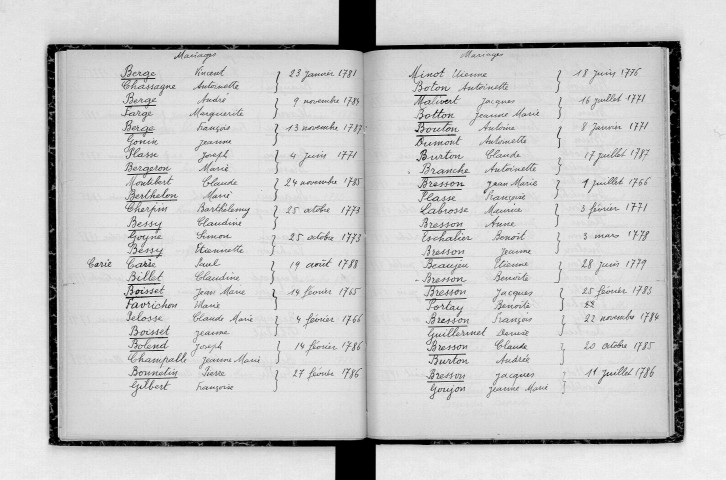 Mariages
Berge Vincent } 23 janvier 1781
Chassagne Antoinette
Berge André } 9 novembre 1784
Farge Marguerite
Berge François } 13 novembre 1787
Gonin Jeanne
Plasse Joseph } 4 juin 1771
Bergeron Marie
Montibert Claude } 24 novembre 1785
Berthelon Marie
Cherpin Barthélemy } 25 octobre 1773
Bessy Claudine
Goyne Simon } 25 octobre 1773
Bessy Etiennette
Carie Carie Paul } 19 août 1788
Billet Claudine
Boisset Jean Marie } 14 février 1765
Favrichon Marie
Pelosse Claude Marie } 4 février 1766
Boisset Jeanne
Bolend Joseph } 14 février 1786
Champalle Jeanne Marie
Bonnetin Pierre } 27 février 1786
Gilbert Françoise
Mariages
Minot Etienne } 18 juin 1776
Boton Antoinette
Mativert Jacques } 16 juillet 1771
Botton Jeanne Marie
Bouton Antoine } 8 janvier 1771
Dumont Antoinette
Burton Claude } 17 juillet 1787
Branche Antoinette
Bresson Jean Marie } 1 juillet 1766
Plasse Françoise
Labrosse Maurice } 3 février 1771
Bresson Anne
Eschalier Benoît } 3 mars 1778
Bresson Jeanne
Beaujeu Etienne } 28 juin 1779
Bresson Benoite
Bresson Jacques } 25 février 1783
Portay Benoite
Bresson François } 22 novembre 1784
Guillermet
Bresson Claude } 20 octobre 1785
Burton Andrée
Bresson Jacques } 11 juillet 1786
Goujon Jeanne Marie